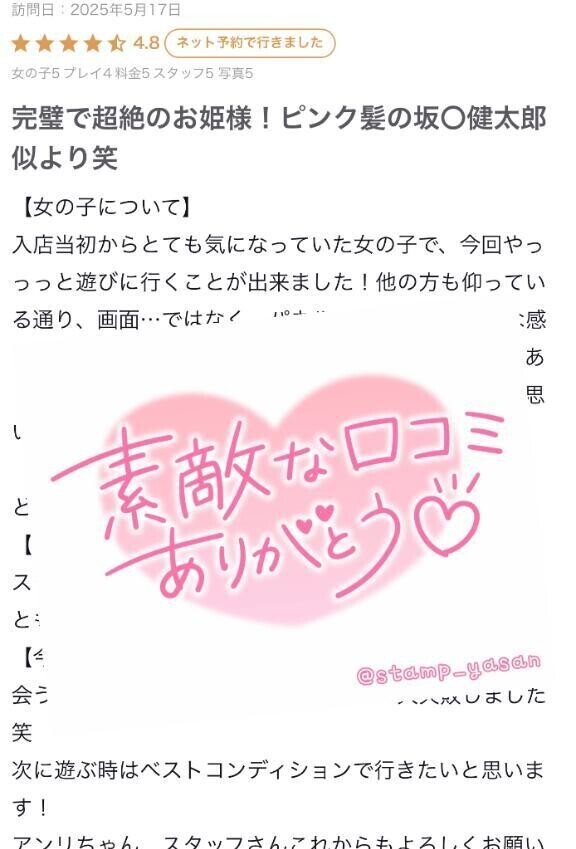 訪問日：2025年5月17日
4.8 ネット予約で行きました
女の子5 プレイ4 料金5 スタッフ5 写真5
完璧で超絶のお姫様！ピンク髪の坂〇健太郎
似より笑
【女の子について】
入店当初からとても気になっていた女の子で、今回やっ
っっと遊びに行くことが出来ました！他の方も仰ってい
る通り、画面…ではなく、パネル
感
あ
思
い
素敵な口コミ
ありがとう
ど
【
ス
と
@stamp_yasan
【今
会う
大失敗しました
笑
次に遊ぶ時はベストコンディションで行きたいと思いま
す！
アンリちゃん、スタッフさんこれからもよろしくお願い